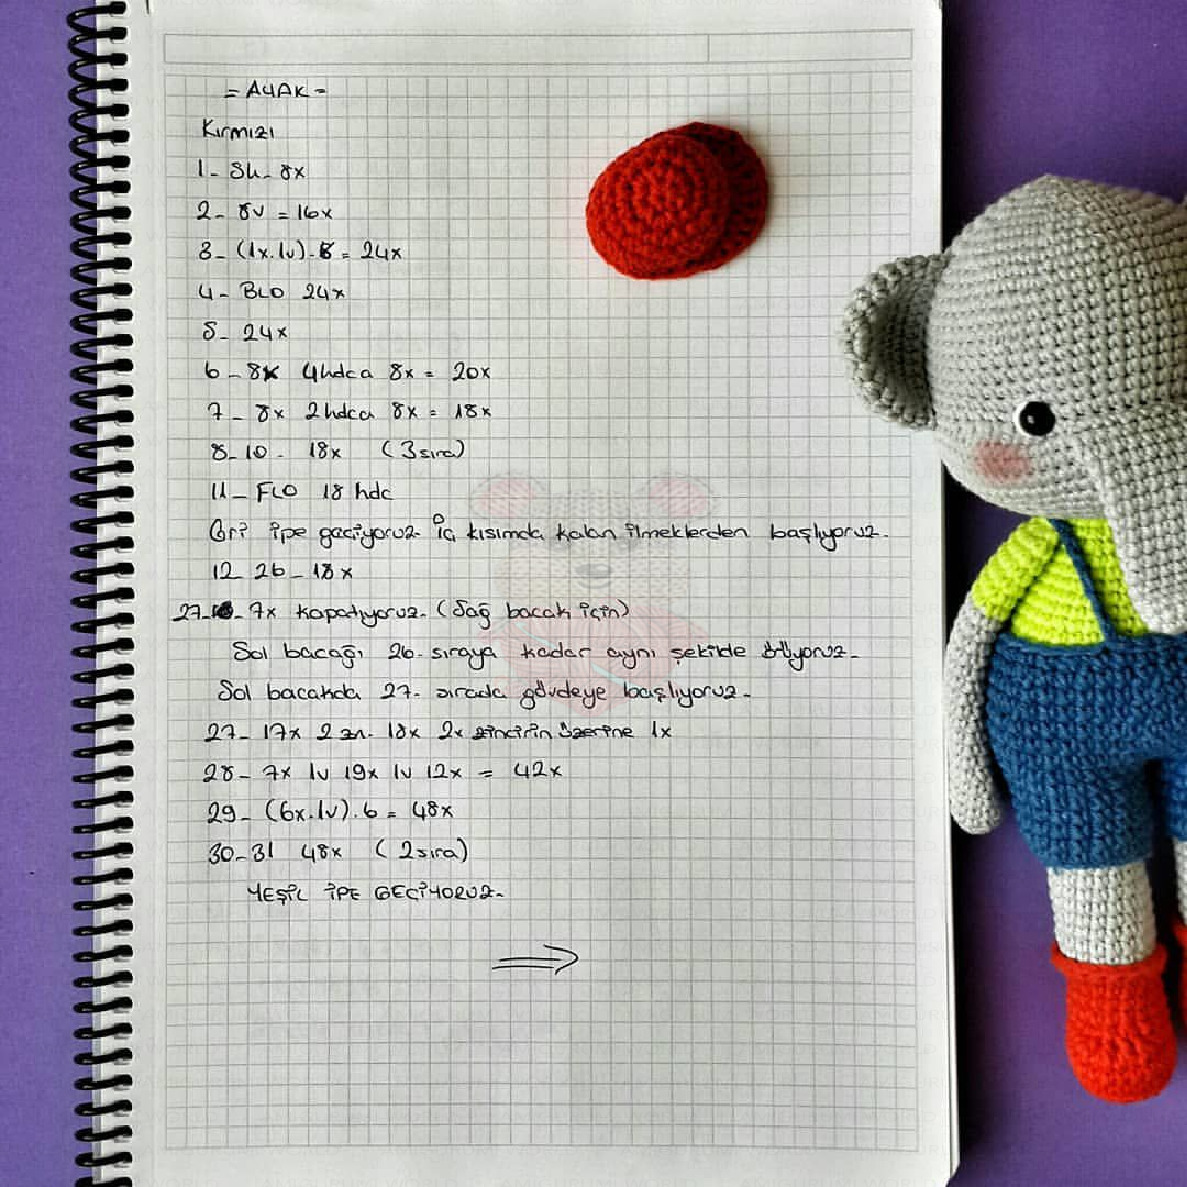 = AYAK -
Kırmızı
1- Sh- 8x
2- 8v = 16x
3- (1x.1v).8 = 24x
4- BLO 24x
5- 24x
6- 8x 4hdca 8x = 20x
7- 8x 2hdca 8x = 18x
8-10- 18x (3 sıra)
11- FLO 18 hdc
Gri ipe geçiyoruz. İç kısımda kalan ilmeklerden başlıyoruz.
12-26- 18x
27- 7x kapatıyoruz. (Sağ bacak için)
Sol bacağı 26. sıraya kadar aynı şekilde örüyoruz.
Sol bacakda 27. sırada gövdeye başlıyoruz.
27- 17x 2 zn. 18x 2x zincirin üzerine 1x
28- 7x 1v 19x 1v 12x = 42x
29- (6x.1v).6 = 48x
30-31 48x (2 sıra)
YEŞİL İPE GEÇİYORUZ.